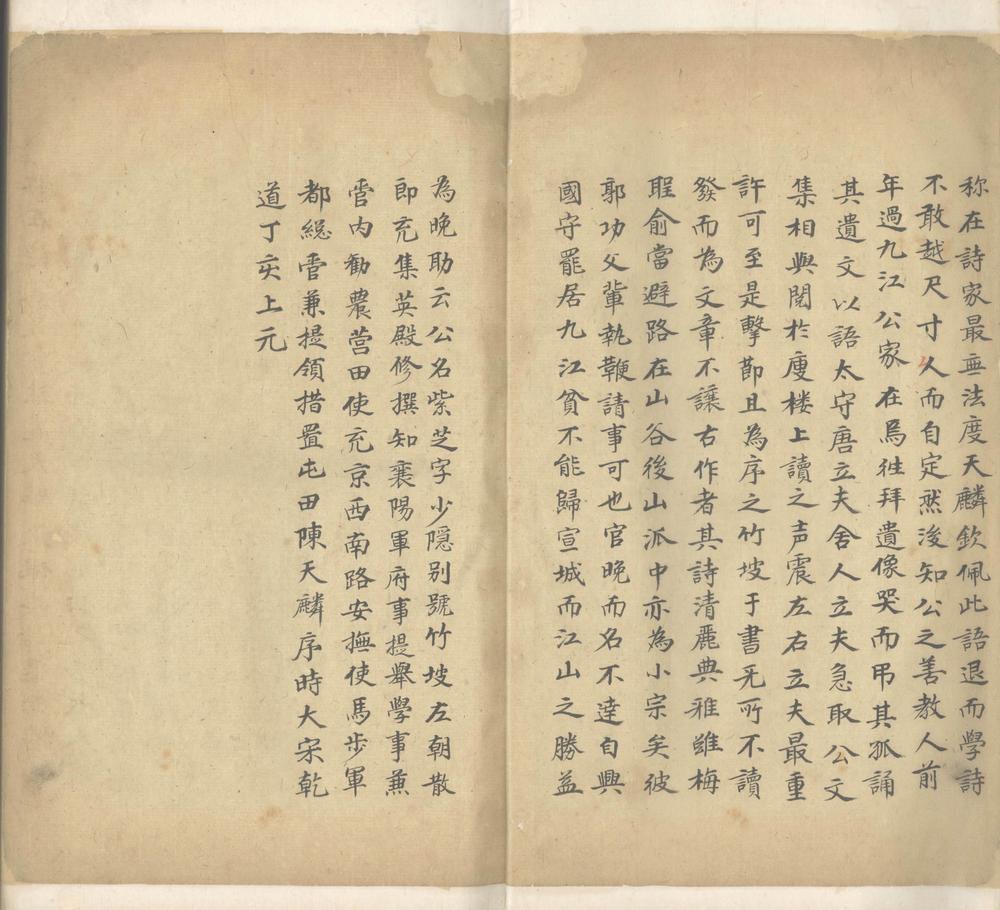 称在詩家最無法度天麟欽佩此語退而學詩
不敢越尺寸久而自定然後知公之善教人前
年過九江公家在焉往拜遺像哭而弔其孤誦
其遺文以語太守唐立夫舍人立夫急取公文
集相與閱於庾楼上讀之声震左右立夫最重
許可至是擊節且為序之竹坡于書无所不讀
發而為文章不讓古作者其詩清麗典雅雖梅
聖俞當避路在山谷後山派中亦為小宗矣彼
郭功父軰執鞭請事可也官晚而名不達自興
國守罷居九江貧不能歸宣城而江山之勝益
為晚助云公名紫芝字少隱别號竹坡左朝散
郎充集英殿修撰知襄陽軍府事提舉學事兼
管内勸農営田使充京西南路安撫使馬步軍
都総管兼提領措置屯田陳天麟序時大宋乾
道丁亥上元